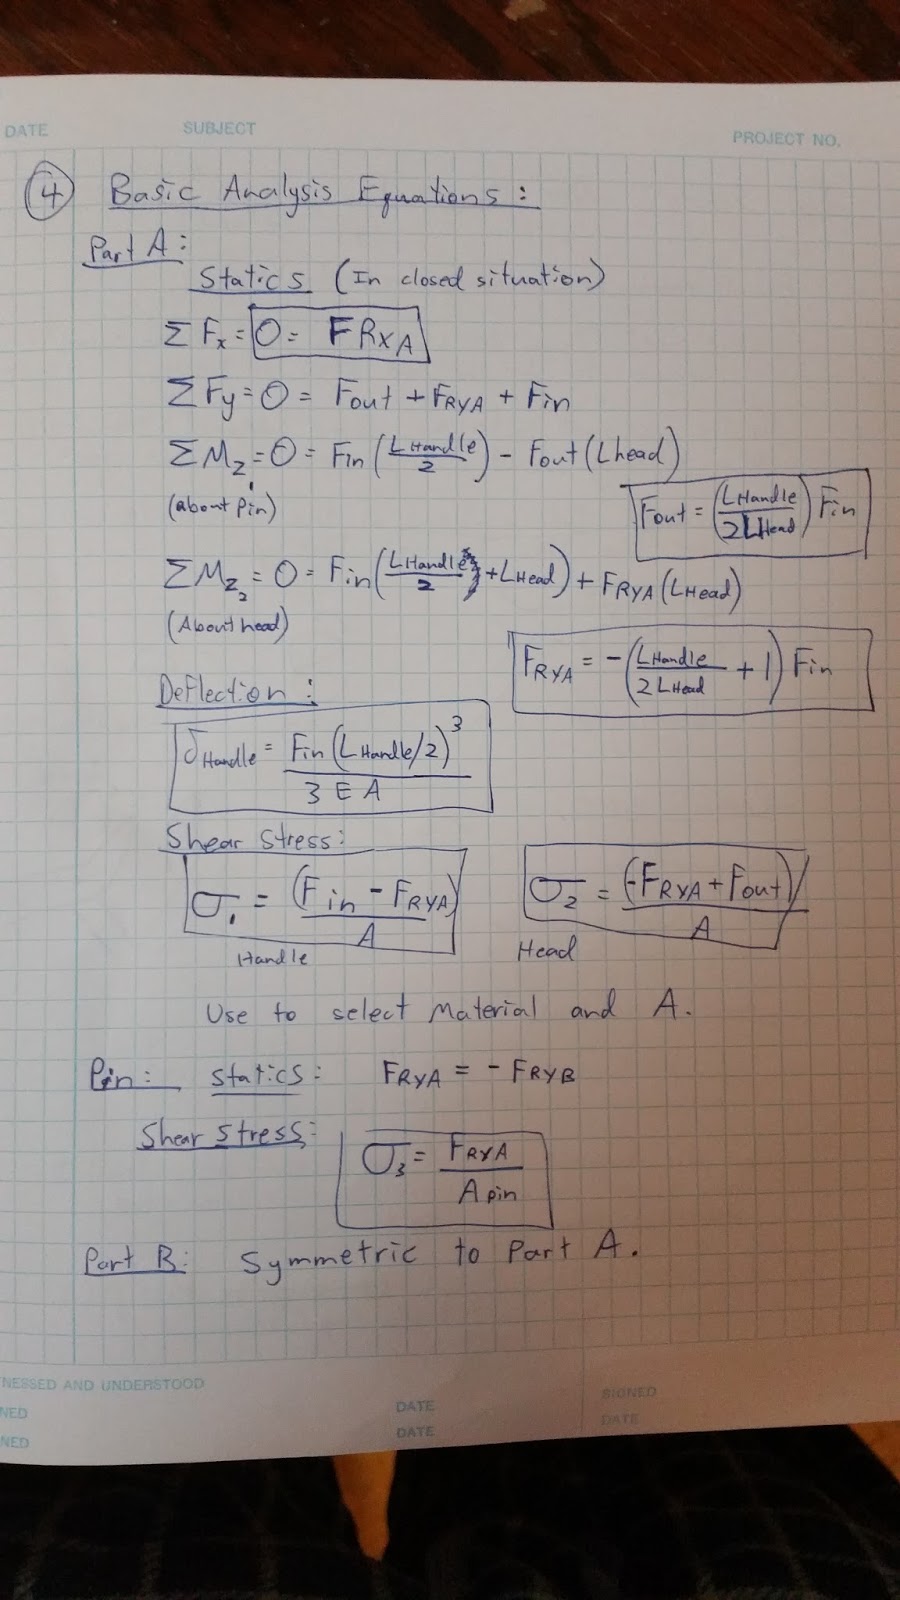 DATE SUBJECT PROJECT NO.
④ Basic Analysis Equations:
Part A:
Statics (In closed situation)
ΣFx = 0 = FRXA
ΣFy = 0 = Fout + FRYA + Fin
ΣMz = 0 = Fin(LHandle/2) - Fout(Lhead)
(about Pin)
Fout = (LHandle/2LHead) Fin
ΣMz2 = 0 = Fin(LHandle/2 + LHead) + FRYA(LHead)
(About head)
FRYA = -(LHandle/2LHead + 1) Fin
Deflection:
δHandle = Fin(LHandle/2)^3 / 3EA
Shear Stress:
σ1 = (Fin - FRYA)/A σ2 = (-FRYA + Fout)/A
Handle Head
Use to select Material and A.
Pin: Statics: FRYA = - FRYB
Shear Stress:
σ3 = FRYA/Apin
Part B: Symmetric to Part A.
NESSED AND UNDERSTOOD SIGNED
NED DATE DATE
NED DATE